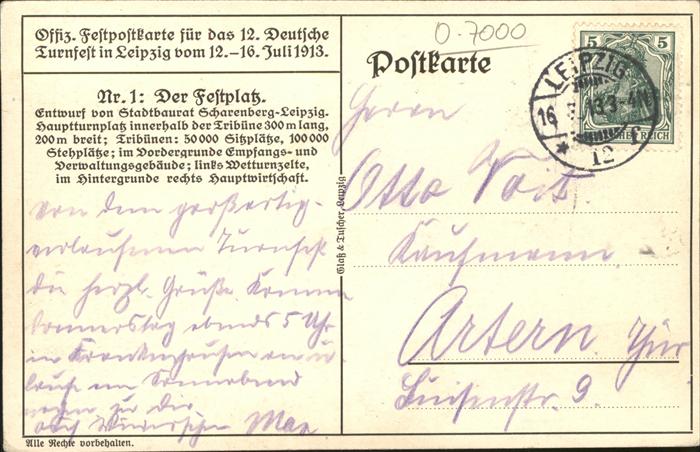 Offiz. Festpostkarte für das 12. Deutsche
Turnfest in Leipzig vom 12.-16. Juli 1913.
Nr. 1: Der Festplatz.
Entwurf von Stadtbaurat Scharenberg-Leipzig.
Hauptturnplatz innerhalb der Tribüne 300 m lang,
200 m breit; Tribünen: 50000 Sitzplätze, 100000
Stehplätze; im Vordergrunde Empfangs- und
Verwaltungsgebäude; links Wetturnzelte,
im Hintergrunde rechts Hauptwirtschaft.
Von dem großartig
verlaufenen Turnfest
die herzl. Grüße. Komme
Donnerstag abends 5 Uhr
in
Sonnabend
zu dir
Max
Alle Rechte vorbehalten.
Glaß & Tuscher, Leipzig
0-7000
Postkarte
5 5
LEIPZIG
16 13 3-4N
* 12
REICH
Herrn
Otto Voit
Kaufmann
Artern Thür
Luisenstr. 9.